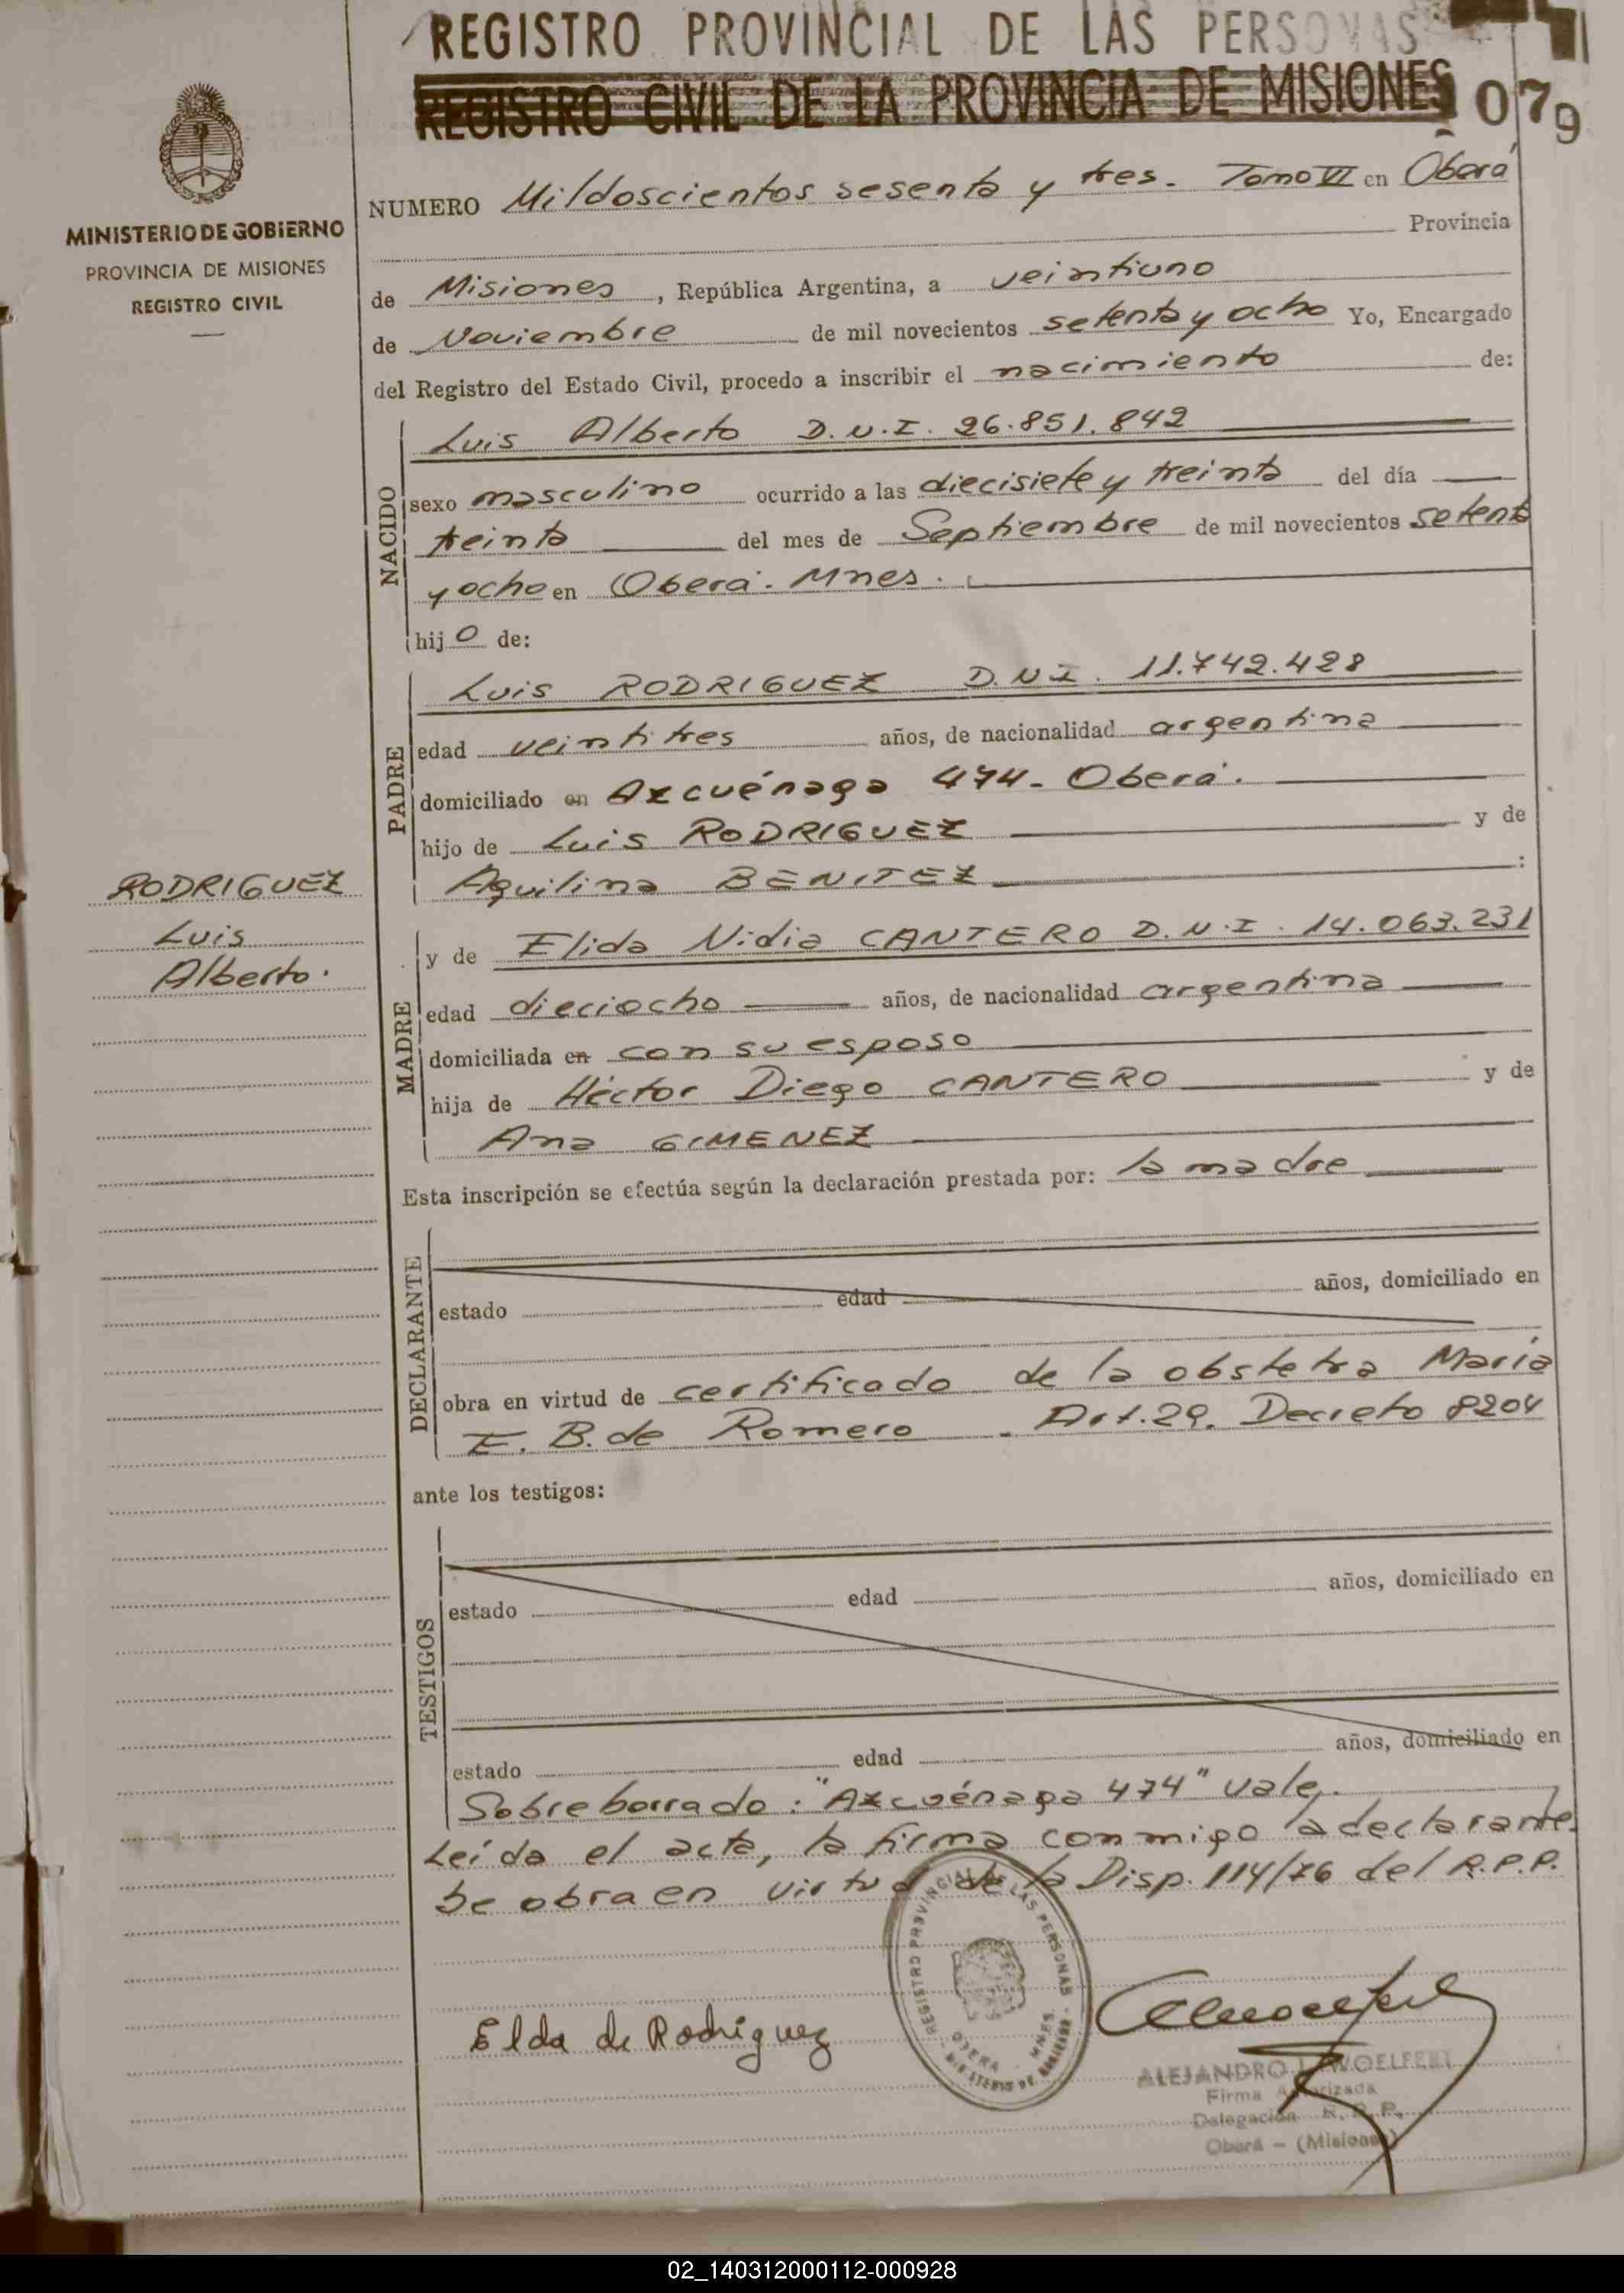 REGISTRO PROVINCIAL DE LAS PERSONAS
REGISTRO CIVIL DE LA PROVINCIA DE MISIONES
079
MINISTERIO DE GOBIERNO
PROVINCIA DE MISIONES
REGISTRO CIVIL
NUMERO Mildoscientos sesenta y tres. Tomo VI en Oberá
Provincia
de Misiones, República Argentina, a veintiuno
de Noviembre de mil novecientos setenta y ocho Yo, Encargado
del Registro del Estado Civil, procedo a inscribir el nacimiento de:
NACIDO
Luis Alberto D.N.I. 26.851.842
sexo masculino ocurrido a las diecisiete y treinta del día
treinta del mes de Septiembre de mil novecientos setenta
y ocho en Oberá. Mnes.
hijo de:
PADRE
Luis RODRIGUEZ D.N.I. 11.742.428
edad veintitres años, de nacionalidad argentina
domiciliado en Azcuénaga 474- Oberá.
hijo de Luis RODRIGUEZ y de
Aquilina BENITEZ :
RODRIGUEZ
Luis
Alberto.
MADRE
y de Elida Nidia CANTERO D.N.I. 14.063.231
edad dieciocho años, de nacionalidad argentina
domiciliada en con su esposo
hija de Héctor Diego CANTERO y de
Ana GIMENEZ
Esta inscripción se efectúa según la declaración prestada por: la madre
DECLARANTE
estado edad años, domiciliado en
obra en virtud de certificado de la obstetra María
E. B. de Romero . Art. 29. Decreto 8204
ante los testigos:
TESTIGOS
estado edad años, domiciliado en
estado edad años, domiciliado en
Sobreborrado: "Azcuénaga 474" vale.
Leída el acta, la firma conmigo la declarante.
Se obra en virtud de la Disp. 114/76 del R.P.P.
Elda de Rodriguez
REGISTRO PROVINCIAL DE LAS PERSONAS
OBERA - MNES.
MINISTERIO DE GOBIERNO
ALEJANDRO WOELFERT
Firma Autorizada
Delegación R. P. P.
Oberá - (Misiones)
02_140312000112-000928